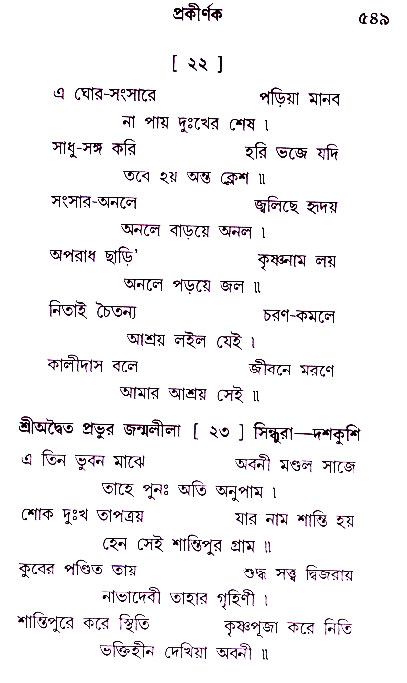 প্রকীর্ণক ৫৪৯
[ ২২ ]
এ ঘোর-সংসারে পড়িয়া মানব
না পায় দুঃখের শেষ ।
সাধু-সঙ্গ করি হরি ভজে যদি
তবে হয় অন্ত ক্লেশ ॥
সংসার-অনলে জ্বলিছে হৃদয়
অনলে বাড়য়ে অনল ।
অপরাধ ছাড়ি' কৃষ্ণনাম লয়
অনলে পড়য়ে জল ॥
নিতাই চৈতন্য চরণ-কমলে
আশ্রয় লইল যেই ।
কালীদাস বলে জীবনে মরণে
আমার আশ্রয় সেই ॥
শ্রীঅদ্বৈত প্রভুর জন্মলীলা [ ২৩ ] সিন্ধুরা—দশকুশি
এ তিন ভুবন মাঝে অবনী মণ্ডল সাজে
তাহে পুনঃ অতি অনুপাম ।
শোক দুঃখ তাপত্রয় যার নাম শান্তি হয়
হেন সেই শান্তিপুর গ্রাম ॥
কুবের পণ্ডিত তায় শুদ্ধ সত্ত্ব দ্বিজরায়
নাভাদেবী তাহার গৃহিণী ।
শান্তিপুরে করে স্থিতি কৃষ্ণপূজা করে নিতি
ভক্তিহীন দেখিয়া অবনী ॥